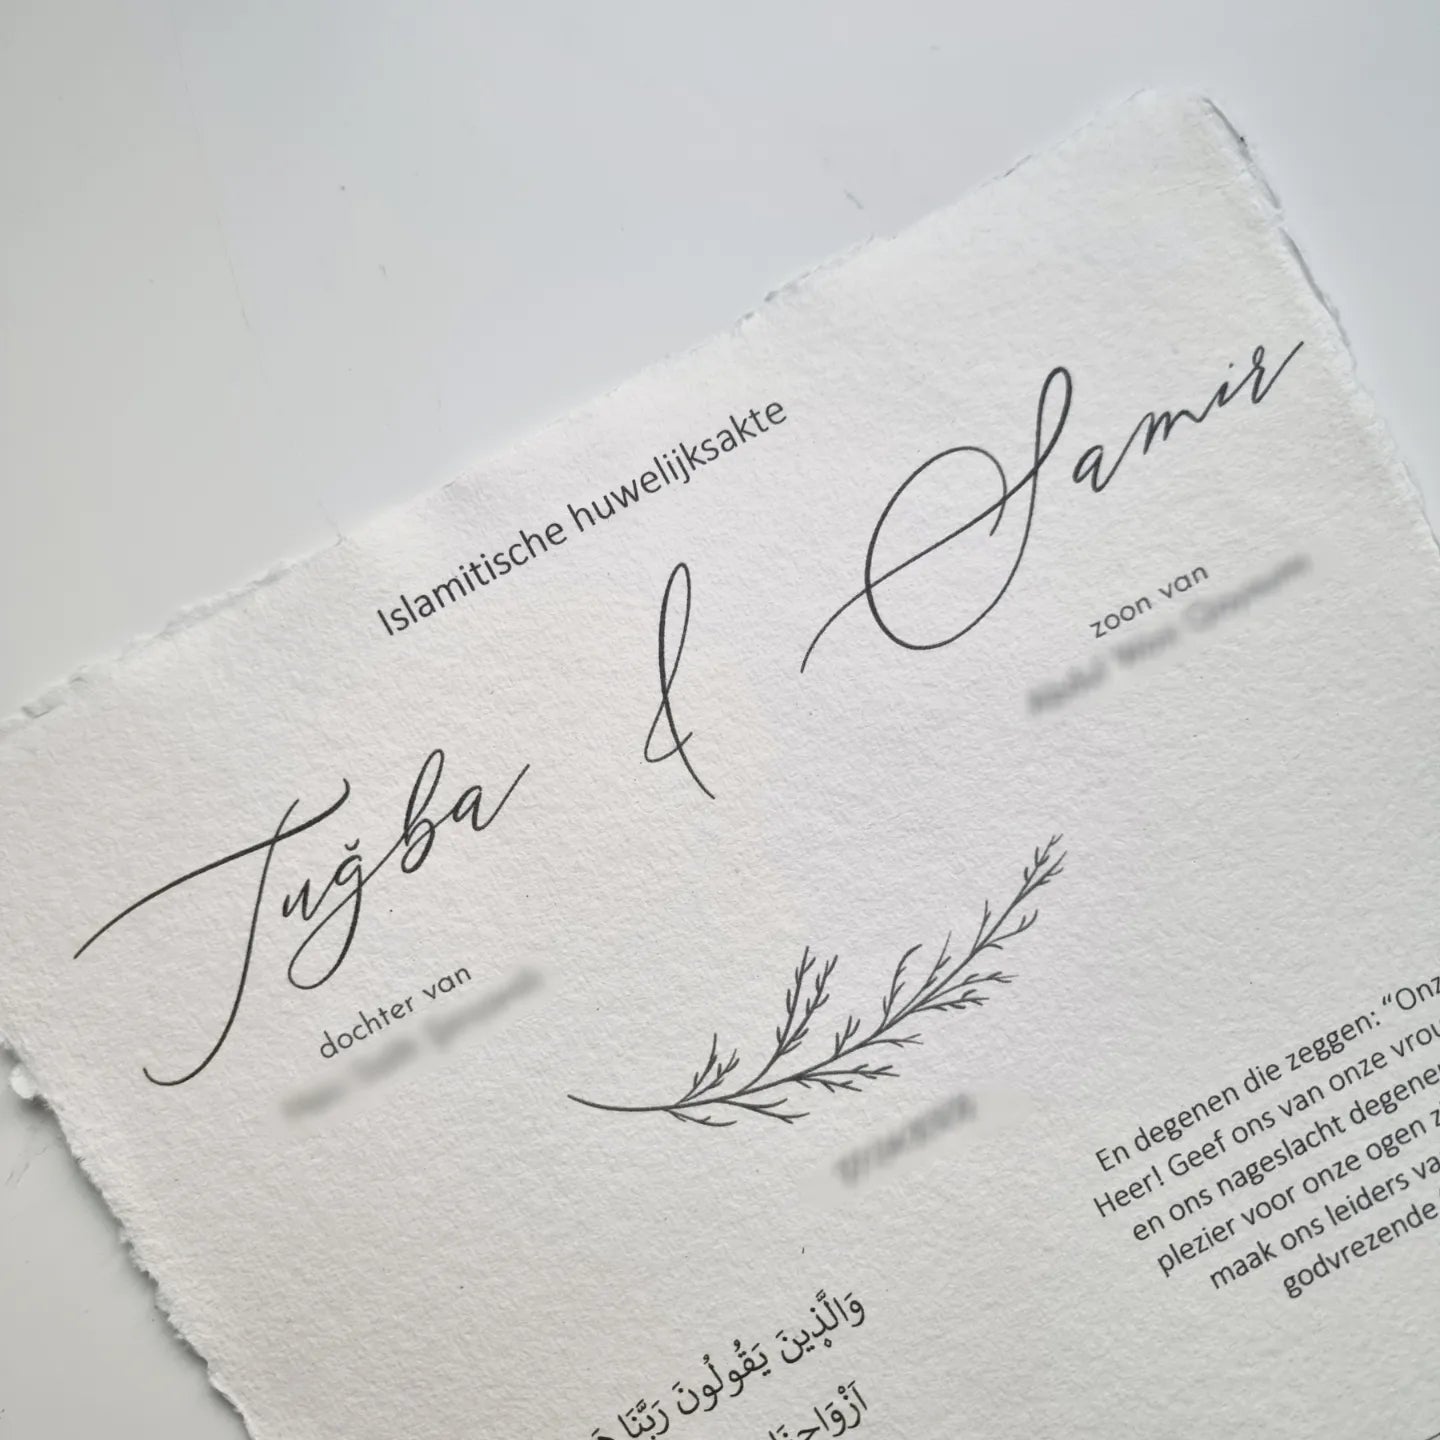 Islamitische huwelijksakte
Tuğba & Samir
dochter van
zoon van
En degenen die zeggen: “Onz
Heer! Geef ons van onze vrou
en ons nageslacht degene
plezier voor onze ogen z
maak ons leiders va
godvrezende
وَالَّذِينَ يَقُولُونَ رَبَّنَا